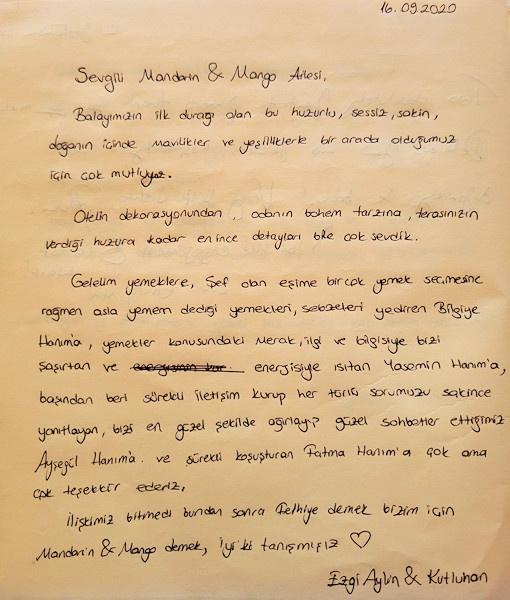 16.09.2020
Sevgili Mandarin & Mango Ailesi,
Balayımızın ilk durağı olan bu huzurlu, sessiz, sakin,
doğanın içinde mavilikler ve yeşilliklerle bir arada olduğumuz
için çok mutluyuz.
Otelin dekorasyonundan, odanın bohem tarzına, terasınızın
verdiği huzura kadar en ince detayları bile çok sevdik.
Gelelim yemeklere, Şef olan eşime birçok yemek seçmesine
rağmen asla yemem dediği yemekleri, sebzeleri yediren Bilgiye
Hanım'a, yemekler konusundaki merak, ilgi ve bilgisiye bizi
şaşırtan ve energisiye ısıtan Yasemin Hanım'a,
başından beri sürekli iletişim kurup her türlü sorumuzu sakince
yanıtlayan, bizi en güzel şekilde ağırlayıp güzel sohbetler ettiğimiz
Ayşegül Hanım'a ve sürekli koşuşturan Fatma Hanım'a çok ama
çok teşekkür ederiz.
İlişkimiz bitmedi bundan sonra Fethiye demek bizim için
Mandarin & Mango demek, iyi ki tanışmışız ♡
Ezgi Aylin & Kutluhan